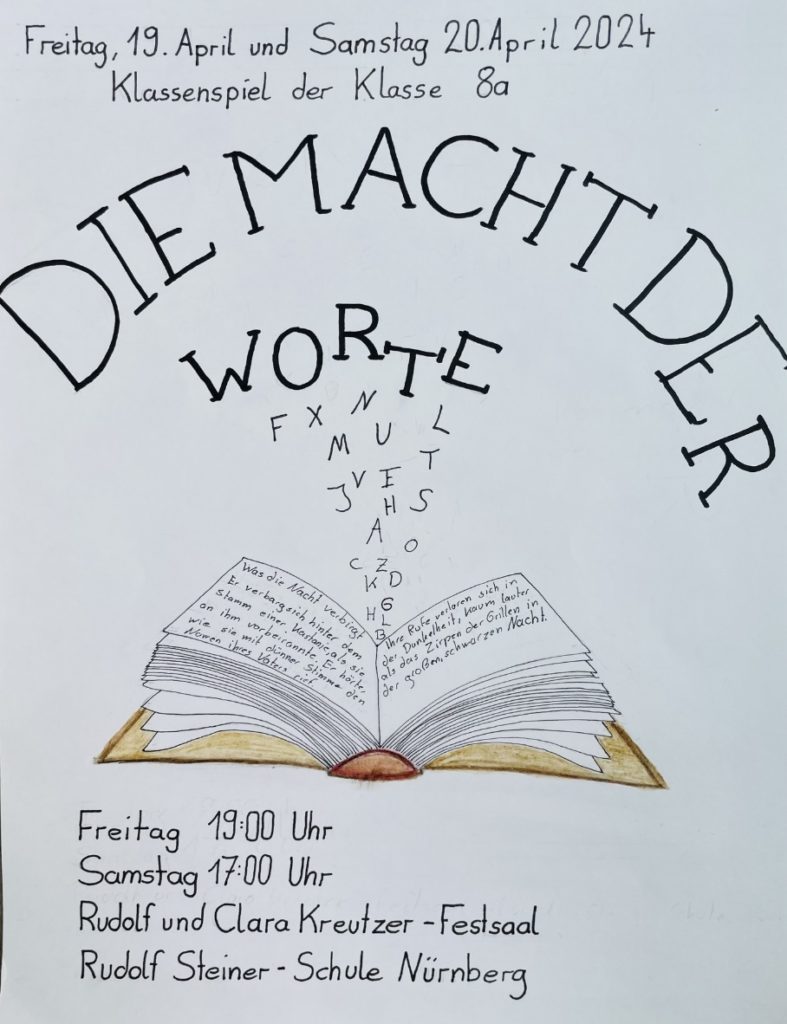 Freitag, 19. April und Samstag 20. April 2024
Klassenspiel der Klasse 8a
DIE MACHT DER
WORTE
F X N L
M U
T
J V E
H S
A
O
C Z
K D
G
H L
B
Was die Nacht verbirgt
Er verbarg sich hinter dem
Stamm einer Kastanie, als sie
an ihm vorbeirannte. Er hörte,
wie sie mit dünner Stimme den
Namen ihres Vaters rief.
Ihre Rufe verloren sich in
der Dunkelheit, kaum lauter
als das Zirpen der Grillen in
der großen, schwarzen Nacht.
Freitag 19:00 Uhr
Samstag 17:00 Uhr
Rudolf und Clara Kreutzer - Festsaal
Rudolf Steiner - Schule Nürnberg